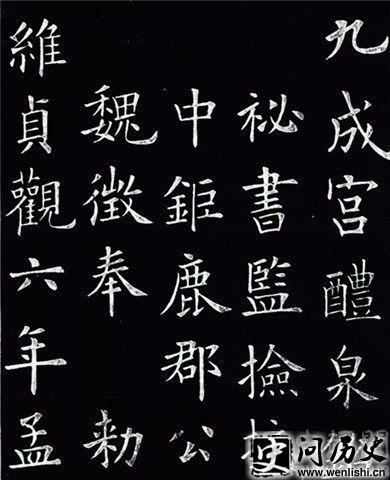 九成宫醴泉
祕書監撿
中鉅鹿郡公
魏徵奉 勑
維貞觀六年孟
问历史
www.wenlishi.cn